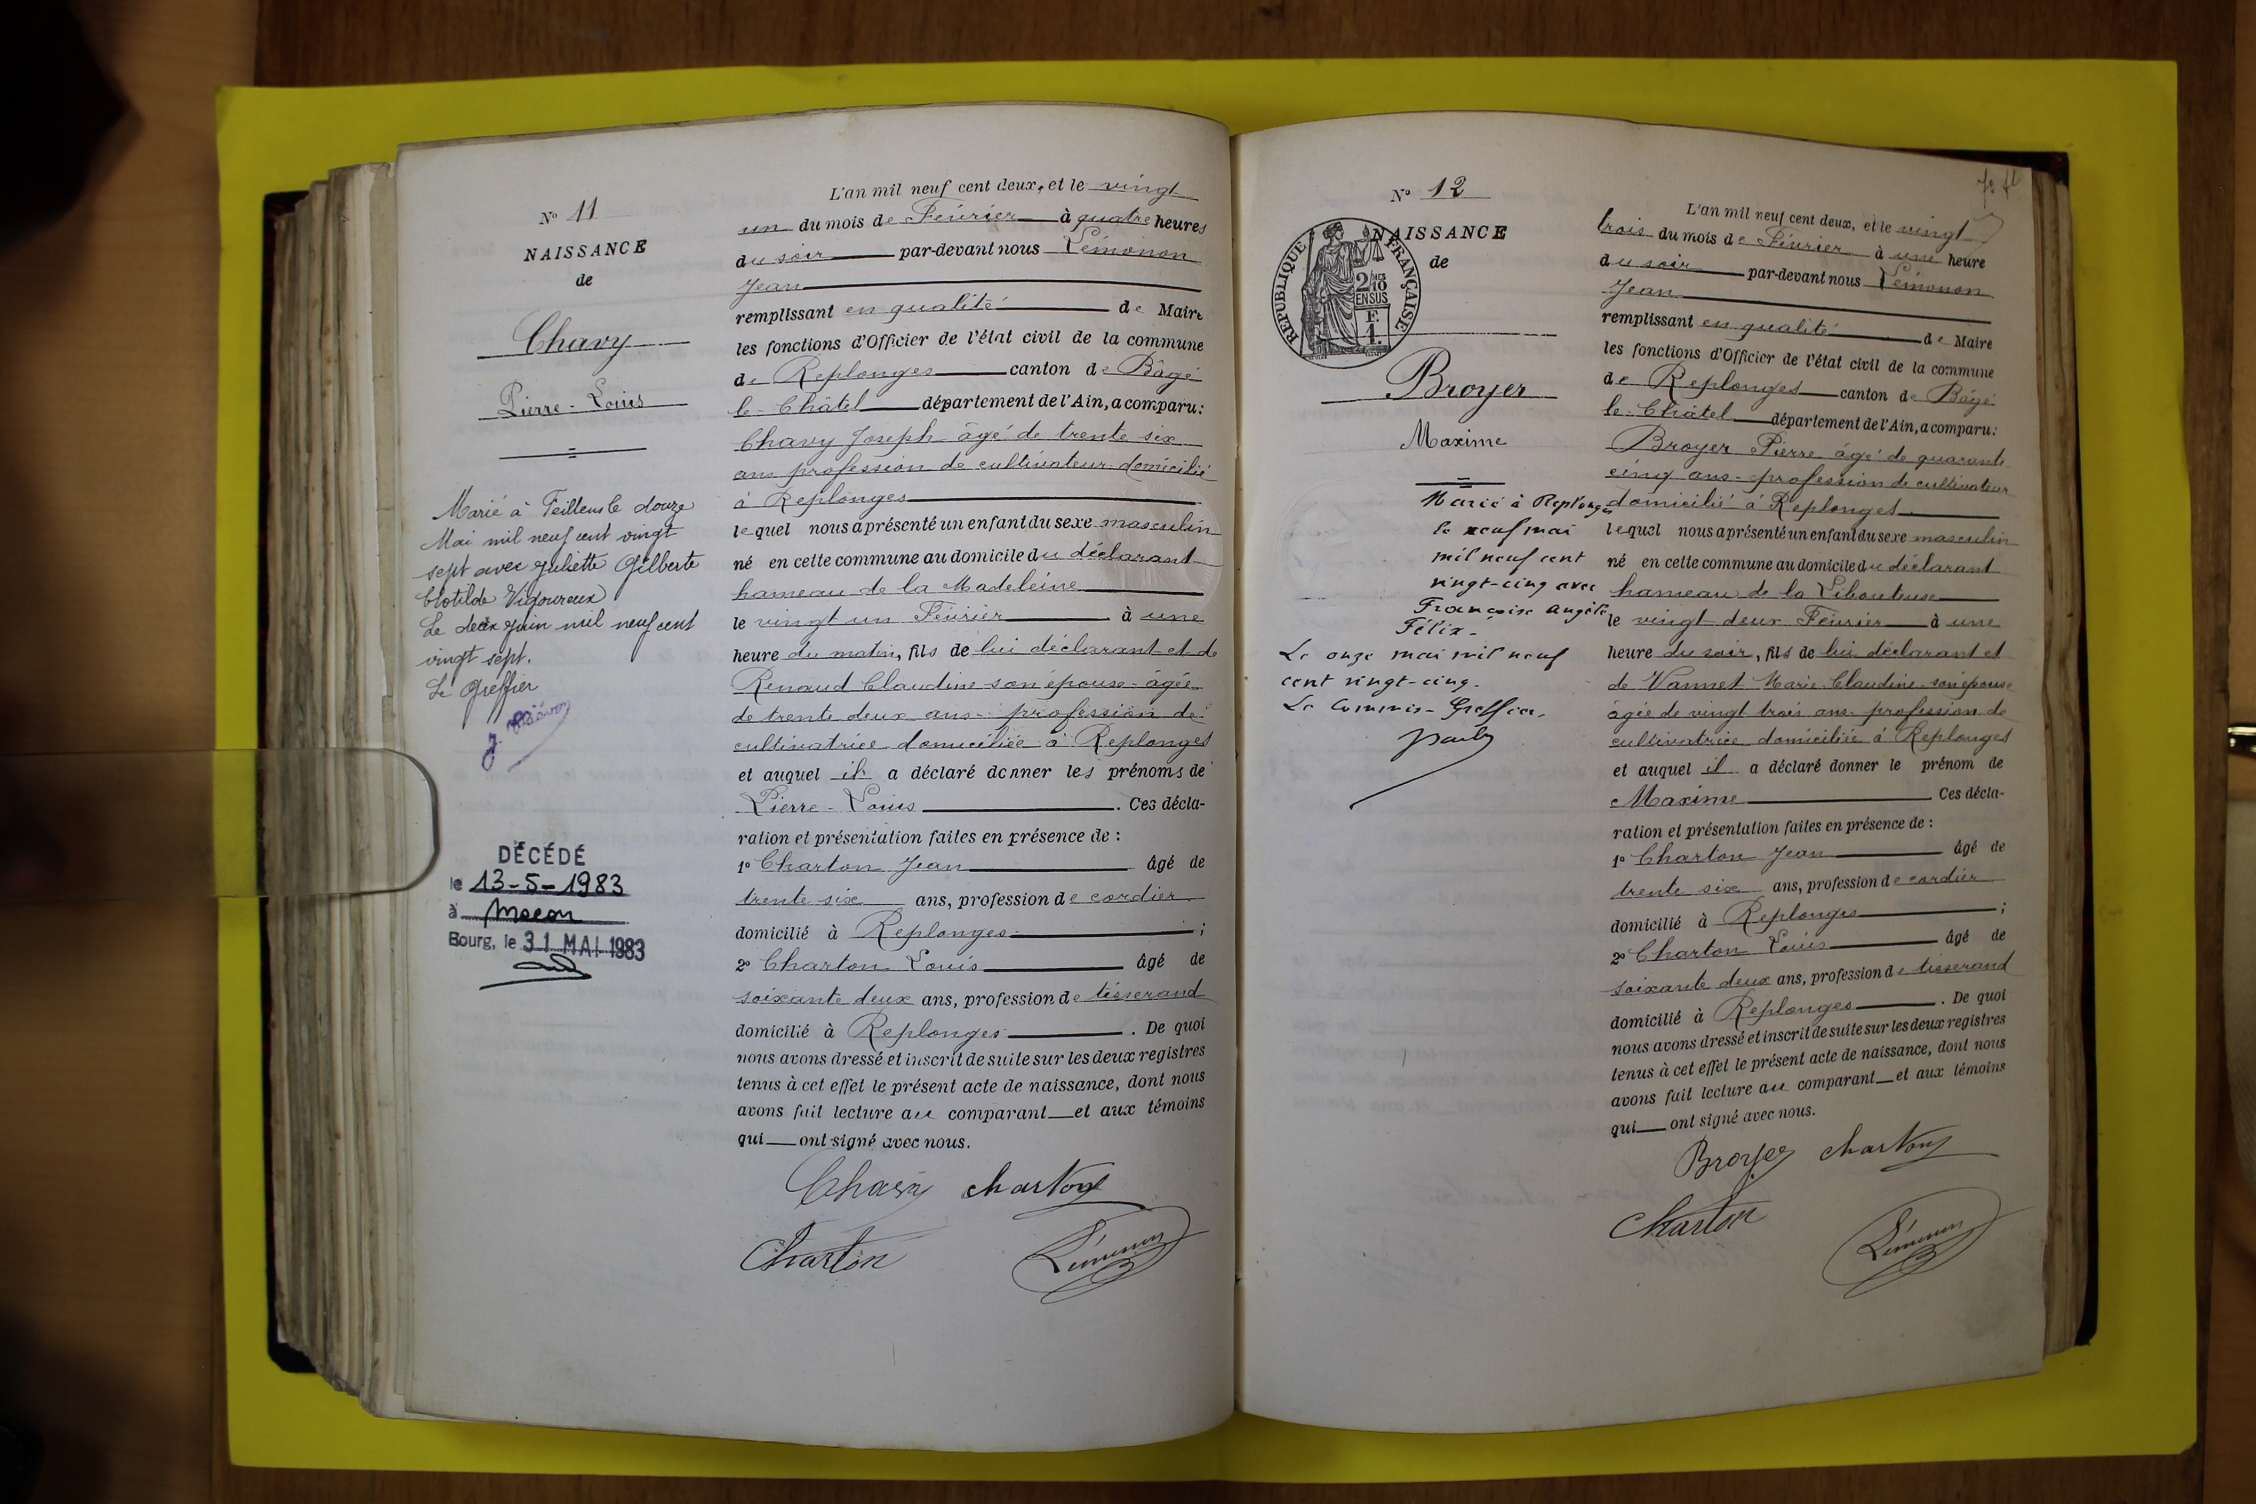 N° 11
NAISSANCE
de
Chavy
Pierre-Louis
Marié à Feillens le douze
Mai mil neuf cent vingt
sept avec Juliette Gilberte
Clotilde Vigoureux
Le deux Juin mil neuf cent
vingt sept.
Le Greffier
DÉCÉDÉ
le 13-5-1983
à Macon
Bourg, le 31 MAI 1983
L'an mil neuf cent deux, et le vingt
un du mois de Février à quatre heures
du soir par-devant nous Lémonon
Jean
remplissant en qualité de Maire
les fonctions d'Officier de l'état civil de la commune
de Replonges canton de Bâgé
le-Châtel département de l'Ain, a comparu:
Chavy Joseph âgé de trente six
ans profession de cultivateur domicilié
à Replonges
lequel nous a présenté un enfant du sexe masculin
né en cette commune au domicile du déclarant
hameau de la Madeleine
le vingt un Février à une
heure du matin, fils de lui déclarant et de
Renaud Claudine son épouse âgée
de trente deux ans profession de
cultivatrice domiciliée à Replonges
et auquel il a déclaré donner les prénoms de
Pierre-Louis. Ces décla-
ration et présentation faites en présence de :
1° Charton Jean âgé de
trente six ans, profession de cordier
domicilié à Replonges ;
2° Charton Louis âgé de
soixante deux ans, profession de tisserand
domicilié à Replonges. De quoi
nous avons dressé et inscrit de suite sur les deux registres
tenus à cet effet le présent acte de naissance, dont nous
avons fait lecture au comparant et aux témoins
qui ont signé avec nous.
Chavy Charton
Charton Lémonon
N° 12
NAISSANCE
de
REPUBLIQUE FRANÇAISE
2/10
EN SUS
F.
1.
Broyer
Maxime
Marié à Replonges
le neuf mai
mil neuf cent
vingt-cinq avec
Françoise Angèle
Félix.
Le onze mai mil neuf
cent vingt-cinq.
Le Commis-Greffier,
L'an mil neuf cent deux, et le vingt
trois du mois de Février à une heure
du soir par-devant nous Lémonon
Jean
remplissant en qualité de Maire
les fonctions d'Officier de l'état civil de la commune
de Replonges canton de Bâgé
le-Châtel département de l'Ain, a comparu:
Broyer Pierre âgé de quarante
cinq ans profession de cultivateur
domicilié à Replonges
lequel nous a présenté un enfant du sexe masculin
né en cette commune au domicile du déclarant
hameau de la
le vingt deux Février à une
heure du soir, fils de lui déclarant et
de Vannet Marie Claudine son épouse
âgée de vingt trois ans profession de
cultivatrice domiciliée à Replonges
et auquel il a déclaré donner le prénom de
Maxime Ces décla-
ration et présentation faites en présence de :
1° Charton Jean âgé de
trente six ans, profession de cordier
domicilié à Replonges ;
2° Charton Louis âgé de
soixante deux ans, profession de tisserand
domicilié à Replonges. De quoi
nous avons dressé et inscrit de suite sur les deux registres
tenus à cet effet le présent acte de naissance, dont nous
avons fait lecture au comparant et aux témoins
qui ont signé avec nous.
Broyer Charton
Charton Lémonon